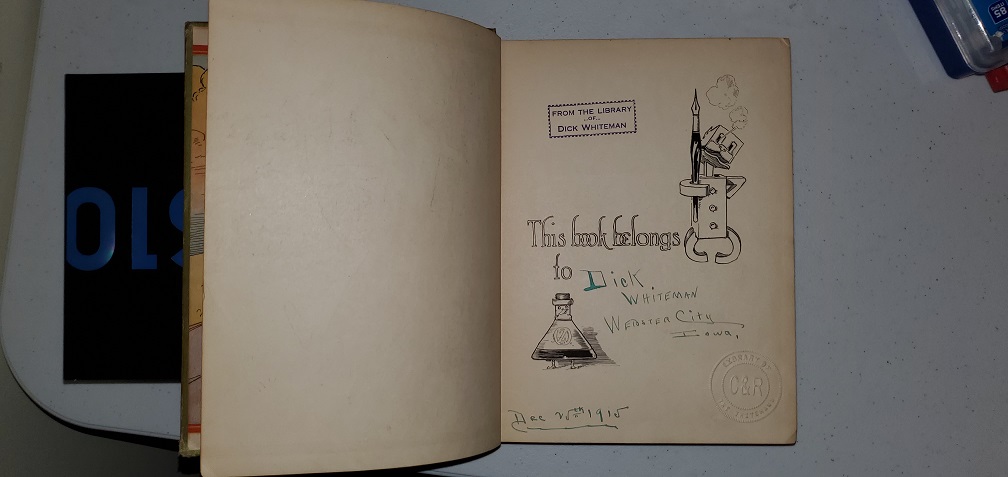 FROM THE LIBRARY
..OF..
DICK WHITEMAN
This book belongs
to Dick
WHITEMAN
WEBSTER City
Iowa.
Dec 25th 1915
C&R
S10
85